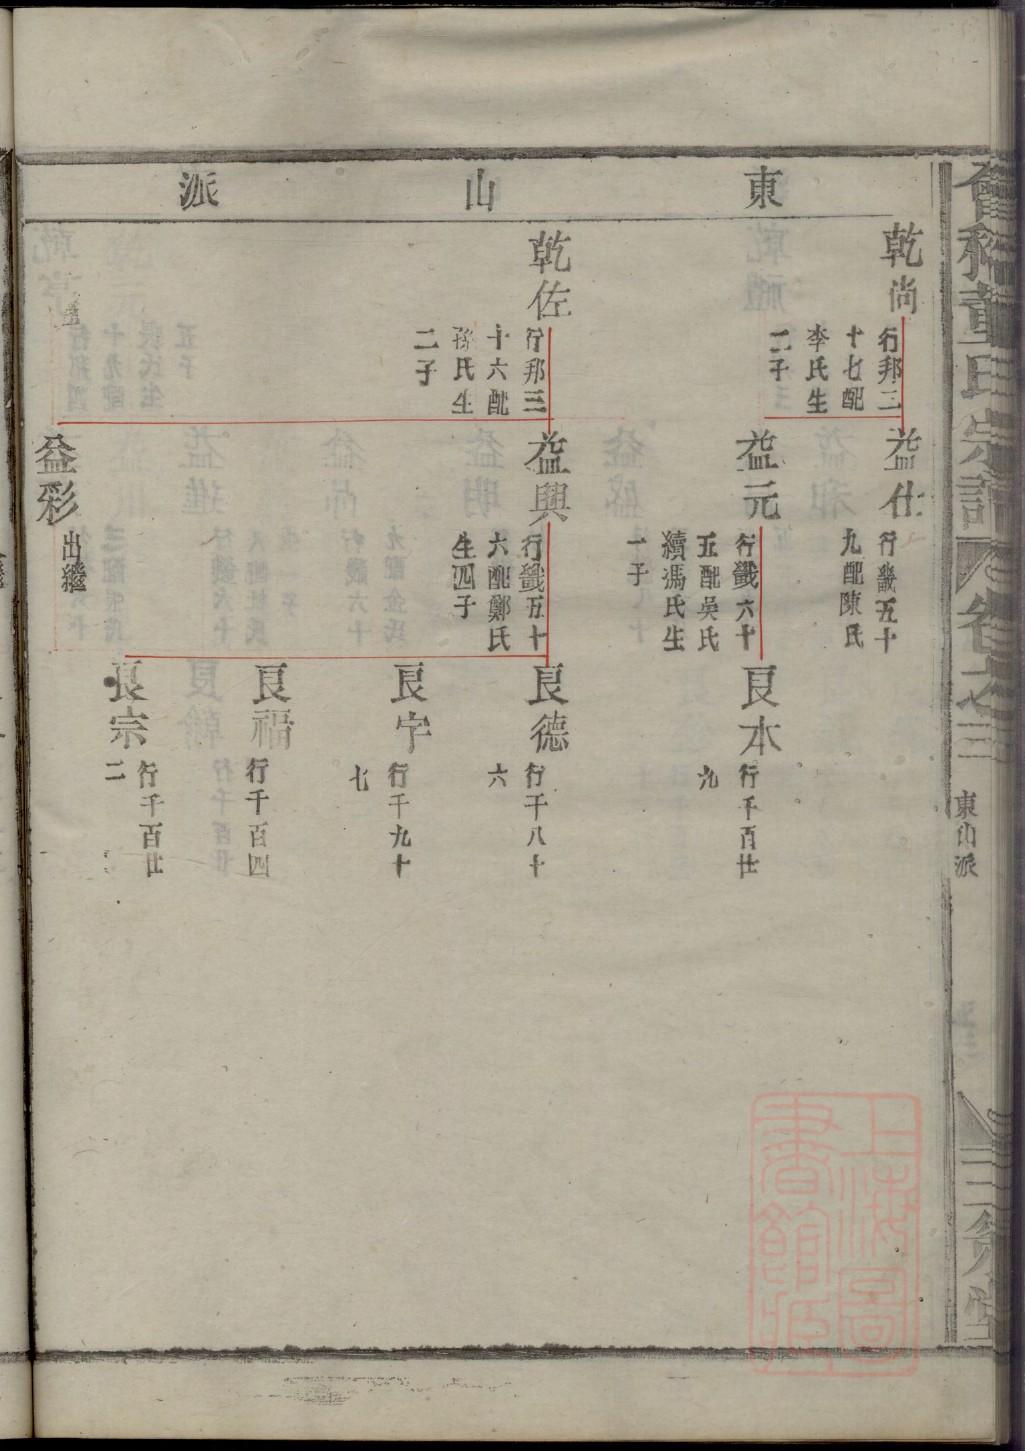 東山派
乾尚
行邦三
十七配
李氏生
二子
益仕
行鐖五十
九配陳氏
益元
行鐖六十
五配吳氏
續馮氏生
一子
良本
行千百廿
九
乾佐
行邦三
十六配
孫氏生
二子
益興
行鐖五十
六配鄭氏
生四子
良德
行千八十
六
良字
行千九十
七
良福
行千百四
良宗
行千百廿
二
益彩
出繼
董氏宗譜
卷之三
東山派
上海圖
書館藏